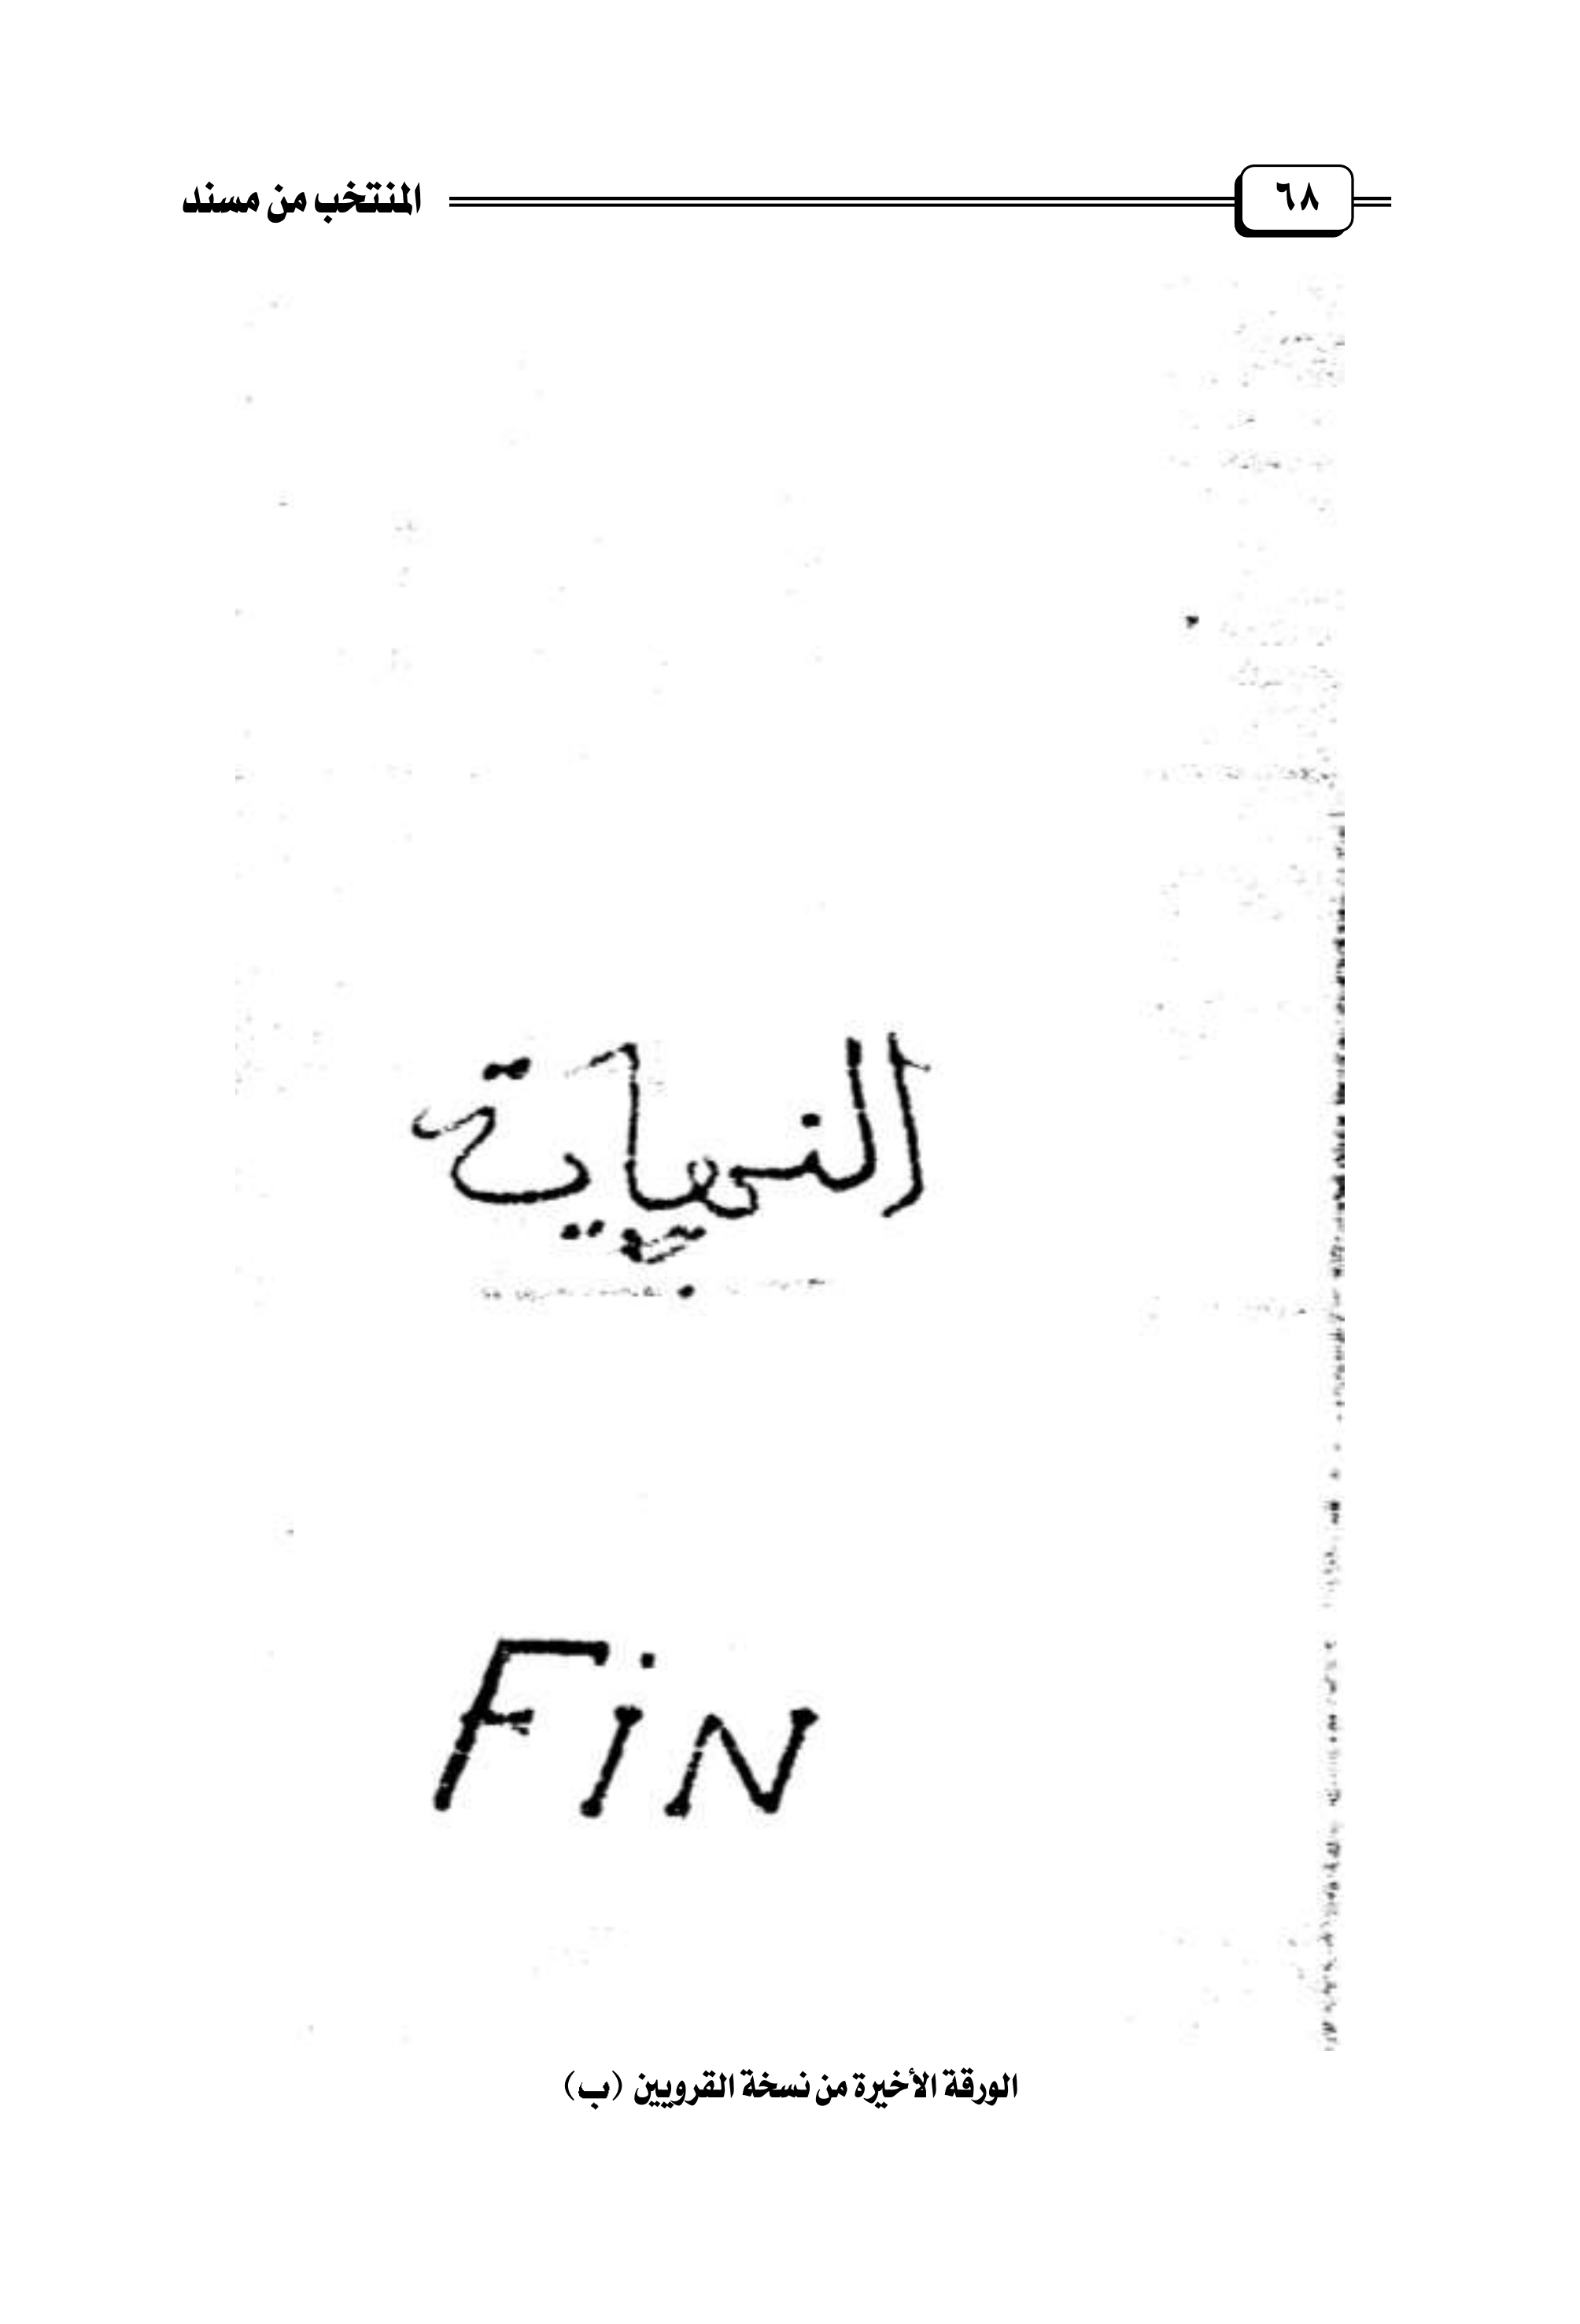 ٦٨ المنتخب من مسند
النهاية
FiN
الورقة الأخيرة من نسخة القرويين (ب)